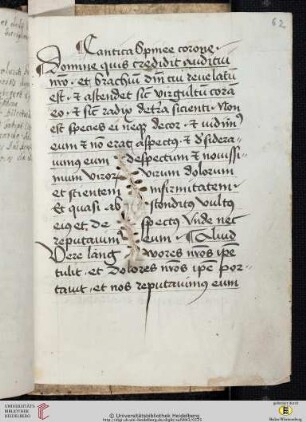 62
Cantica Spinee corone
Domine quis credidit auditui
nro · et brachiu dni cui reuelatu
est · et ascendet sic virgultu cora
eo · et sic radix de tra sicienti · Non
est species ei neqz decor · et vidim9
eum et no erat aspect9 · et desidera
uimus eum despectum et nouissi
mum viror virum dolorum
et scientem infirmitatem
Et quasi abscondit9 vult9
ei9 et despect9 Vnde nec
reputauim eum
Vere languores nros ipe
tulit · et dolores nros ipe por
tauit · et nos reputauimus eum
UNIVERSITÄTS-
BIBLIOTHEK
HEIDELBERG
© Universitätsbibliothek Heidelberg
Baden-Württemberg